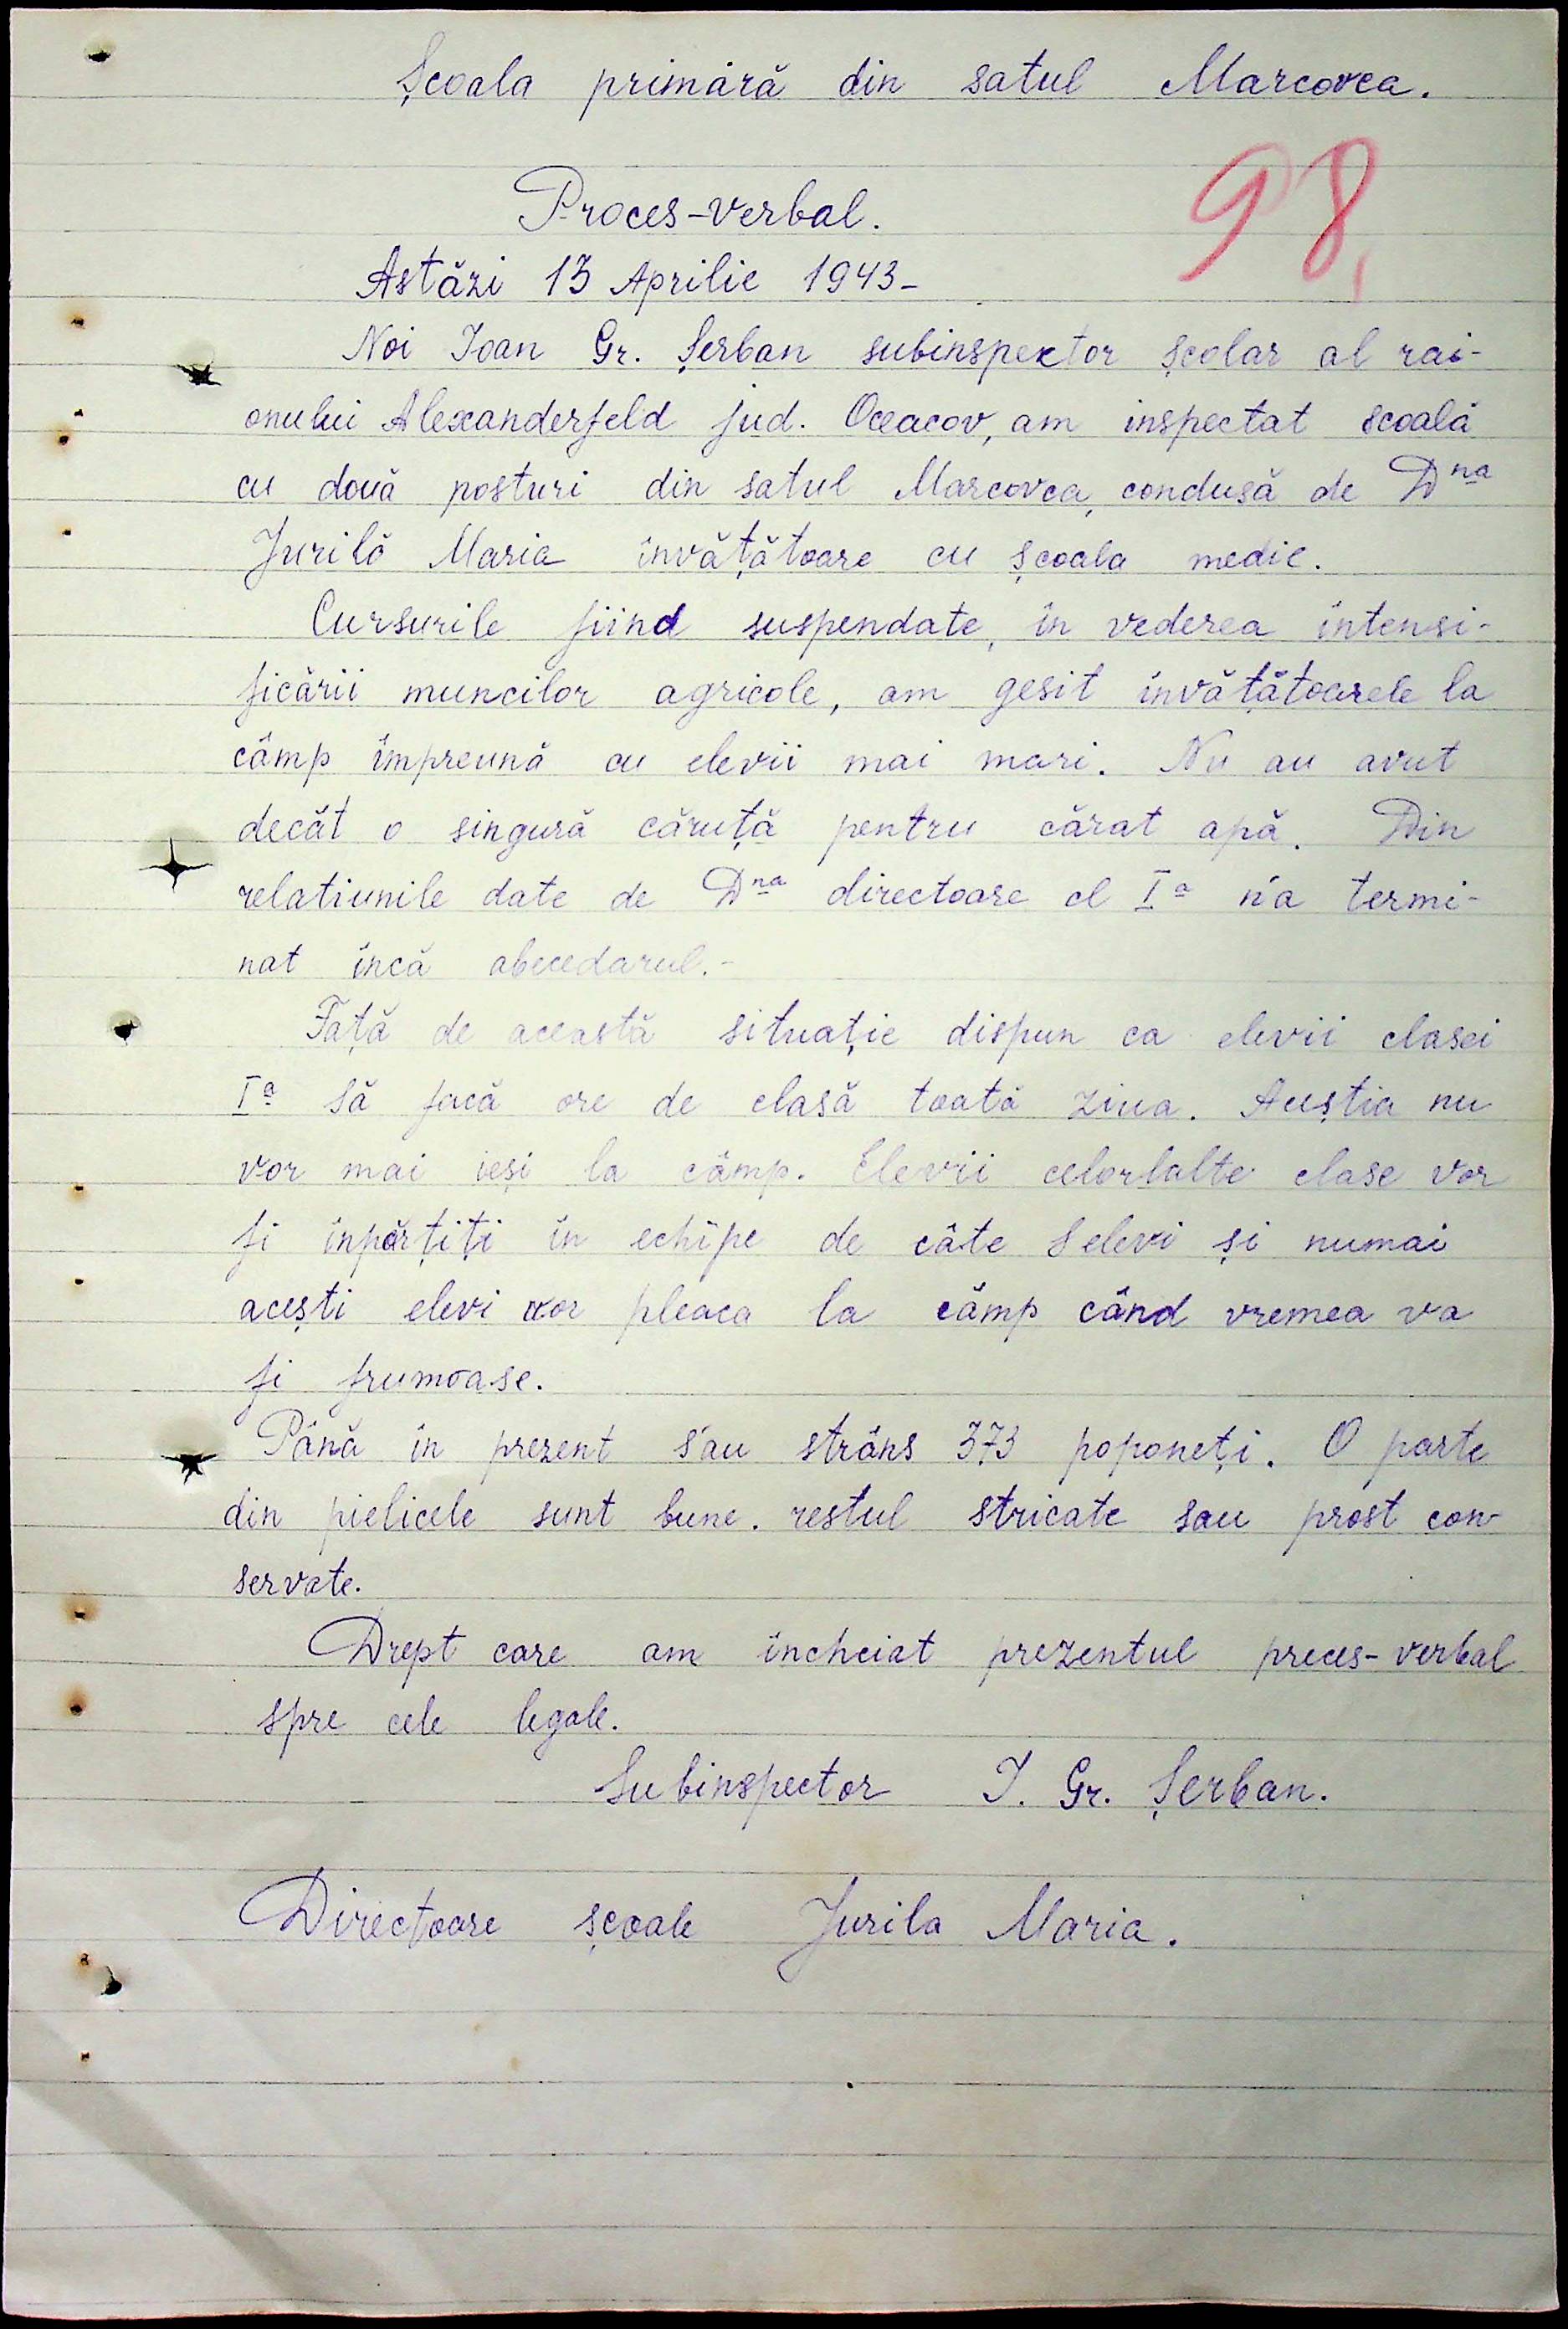 Școala primară din satul Marcovca.
98
Proces-verbal.
Astăzi 13 Aprilie 1943-
Noi Ioan Gr. Șerban subinspector școlar al rai-
onului Alexanderfeld jud. Oceacov, am inspectat scoală
cu două posturi din satul Marcovca, condusă de Dna
Jurilă Maria învățătoare cu școala medie.
Cursurile fiind suspendate, în vederea intensi-
ficării muncilor agricole, am gesit învățătoarele la
câmp împreună cu elevii mai mari. Nu au avut
decât o singură căruță pentru cărat apă. Din
relatiunile date de Dna directoare cl Ia n'a termi-
nat încă abecedarul.-
Față de această situație dispun ca elevii clasei
Ia să facă ore de clasă toată ziua. Aceștia nu
vor mai ieși la câmp. Elevii celorlalte clase vor
fi înpărțiți în echipe de câte elevi și numai
acești elevi vor pleaca la câmp când vremea va
fi frumoase.
Până în prezent s'au strâns 373 poponeți. O parte
din pielicele sunt bune. restul stricate sau prost con-
servate.
Drept care am încheiat prezentul preces-verbal
spre cele legale.
Subinspector I. Gr. Șerban.
Directoare școale Jurila Maria.